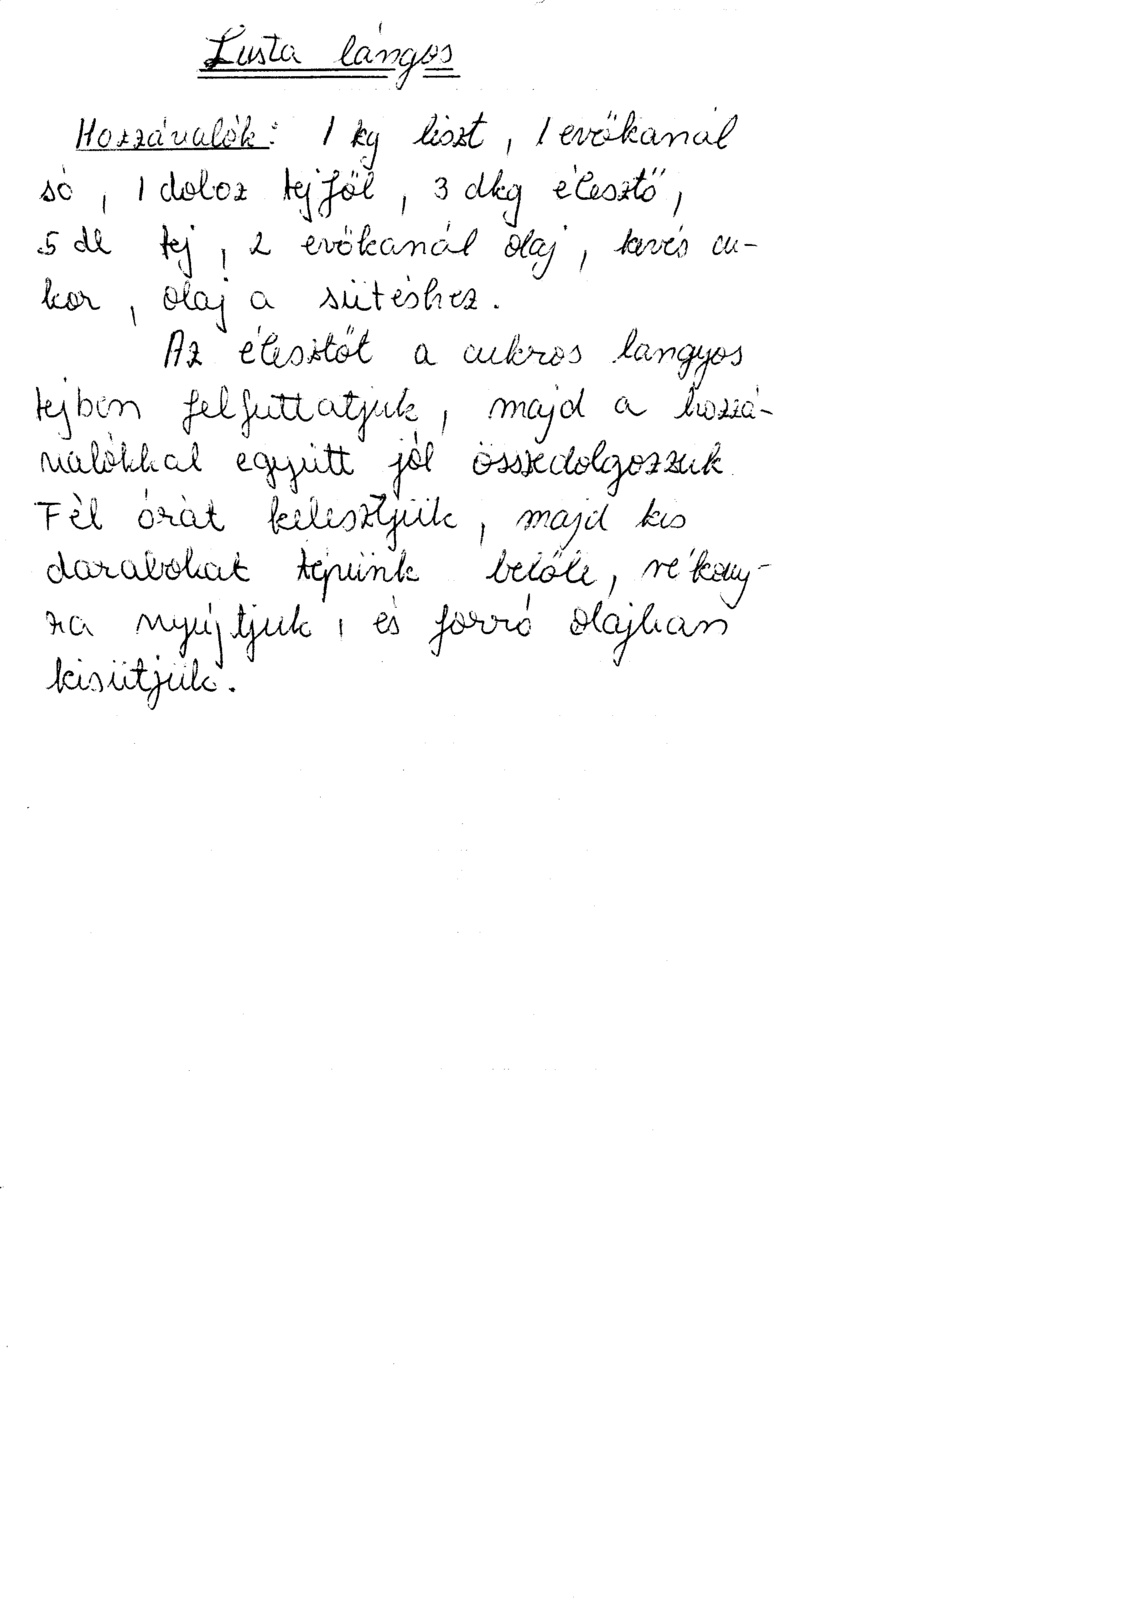 Lusta lángos
Hozzávalók: 1 kg liszt, 1 evőkanál
só, 1 doboz tejföl, 3 dkg élesztő,
5 dl tej, 2 evőkanál olaj, kevés cu-
kor, olaj a sütéshez.
Az élesztőt a cukros langyos
tejben felfuttatjuk, majd a hozzá-
valókkal együtt jól összedolgozzuk.
Fél órát kelesztjük, majd kis
darabokat tépünk belőle, vékony-
ra nyújtjuk, és forró olajban
kisütjük.